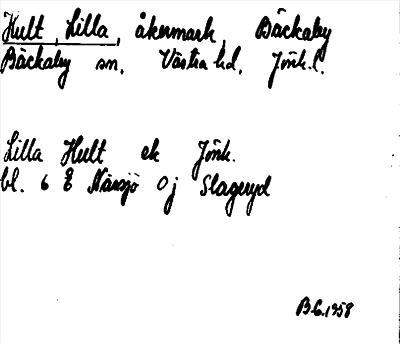 Hult, Lilla, åkermark, Bäckaby
Bäckaby sn. Västra hd. Jönk.l.
Lilla Hult ek Jönk.
bl. 6 E Nässjö 0j Slageryd
B.G.1958